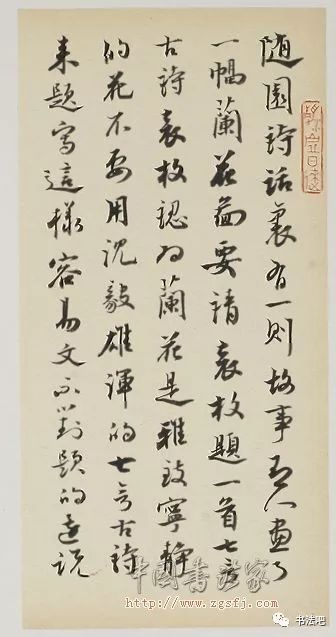 随園詩話裏有一则故事有人画了
一幅蘭花要請袁枚題一首七言
古詩袁枚認为蘭花是雅致寧静
的花不要用沉毅雄渾的七言古詩
来題寫這樣容易文不對題的這说
中国書法家
http://www.zgsfj.com
书法吧